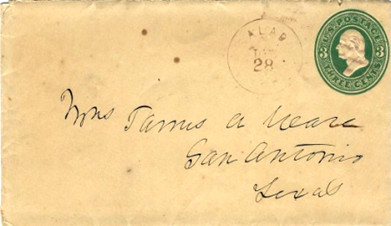 U.S. POSTAGE
3 3
THREE CENTS
28
Mrs James A
San Antonio
Texas